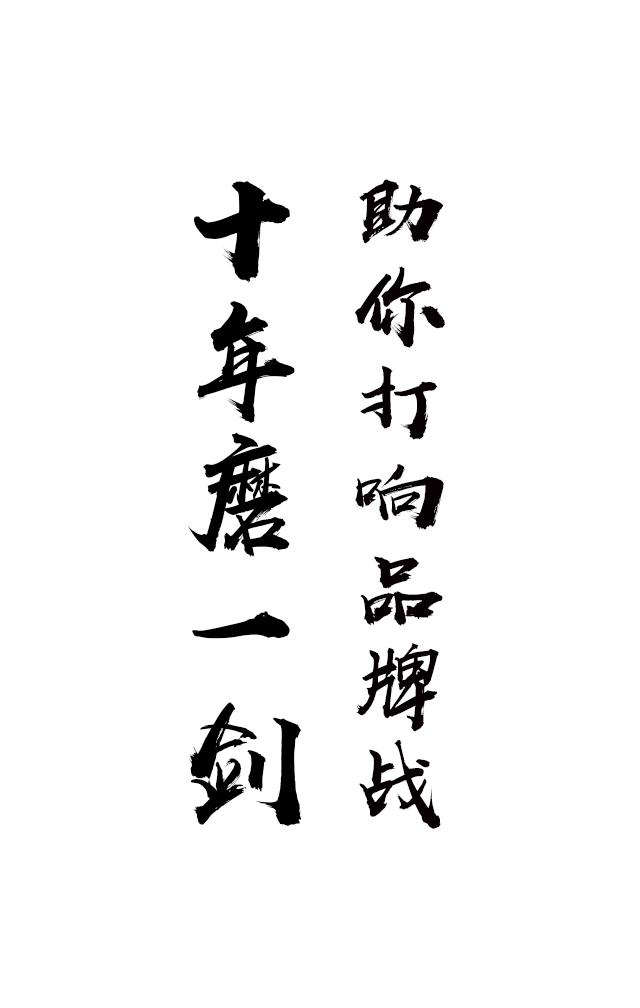 十年磨一剑
助你打响品牌战